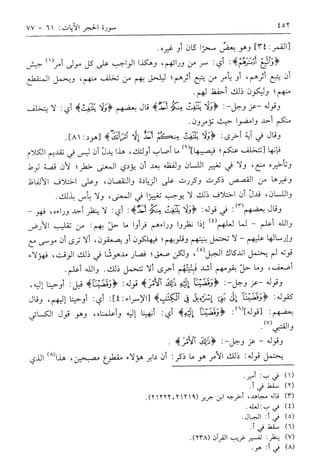 ٤٥٢
سورة الحجر الآيات: ٦١ - ٧٧
[القمر: ٣٤] وهو بعض سحرًا كان أو غيره.
﴿وَٱتَّبِعۡ أَدۡبَٰرَهُمۡ﴾: أي: سر من ورائهم، وهكذا الواجب على كل مولى أمر(١) جيش
أن يتبع أثرهم، أو يأمر من يتبع أثرهم؛ ليلحق بهم من تخلف منهم، ويحمل المنقطع
منهم؛ وليكون ذلك أحفظ لهم.
وقوله -عز وجل-: ﴿وَلَا يَلۡتَفِتۡ مِنكُمۡ أَحَدٞ﴾ قال بعضهم ﴿وَلَا يَلۡتَفِتۡ﴾ أي: لا يتخلف
منكم أحد وامضوا حيث تؤمرون.
وقال في آية أخرى: ﴿وَلَا يَلۡتَفِتۡ مِنكُمۡ أَحَدٌ إِلَّا ٱمۡرَأَتَكَ﴾ [هود: ٨١].
فإنها [تتخلف عنكم؛ فيصيبها](٢) ما أصاب أولئك، هذا يدل أن ليس في تقديم الكلام
وتأخيره منع، ولا في تغيير اللسان ولفظه بعد أن يؤدي المعنى خطر؛ لأن قصة لوط
وغيرها من القصص ذكرت وكررت على الزيادة والنقصان، وعلى اختلاف الألفاظ
واللسان، فدل أن اختلاف ذلك لا يوجب تغييرًا في المعنى، ولا بأس بذلك.
وقال بعضهم(٣): في قوله: ﴿وَلَا يَلۡتَفِتۡ مِنكُمۡ أَحَدٞ﴾: أي: لا ينظر أحد وراءه، فهو -
والله أعلم - لما لعلهم(٤) إذا نظروا وراءهم فرأوا ما حلّ بهم: من تقليب الأرض
وإرسالها عليهم - لا تحتمل بنيتهم وقلوبهم؛ فيهلكون أو يصعقون، ألا ترى أن موسى مع
قوته لم يحتمل اندكاك الجبل(٥)، ولكن صعق؛ فصار مدهوشًا في ذلك الوقت، فهؤلاء
أضعف، وما حلّ بقومهم أشد فبنيتهم أحرى ألا تحتمل ذلك. والله أعلم.
وقوله -عز وجل-: ﴿وَقَضَيۡنَآ إِلَيۡهِ ذَٰلِكَ ٱلۡأَمۡرَ﴾ قوله: ﴿وَقَضَيۡنَآ﴾ قيل: أوحينا إليه،
كقوله: ﴿وَقَضَيۡنَآ إِلَىٰ بَنِيٓ إِسۡرَٰٓءِيلَ فِي ٱلۡكِتَٰبِ﴾ [الإسراء: ٤]: أي: أوحينا إليهم، وقال
بعضهم: [قوله](٦): ﴿وَقَضَيۡنَآ إِلَيۡهِ﴾ أي: أنهينا إليه وأعلمناه، وهو قول الكسائي
والقتبي(٧).
وقوله - عز وجل-: ﴿ذَٰلِكَ ٱلۡأَمۡرَ﴾.
يحتمل قوله: ذلك الأمر هو ما ذكر: أن دابر هؤلاء مقطوع مصبحين، هذا(٨) الذي
(١) في ب: أمير.
(٢) سقط في أ.
(٣) قاله مجاهد، أخرجه ابن جرير (٢١٢١٩، ٢١٢٢٢).
(٤) في ب: لعله.
(٥) في أ: الجبال.
(٦) سقط في أ.
(٧) ينظر: تفسير غريب القرآن (٢٣٨).
(٨) في أ: هو.